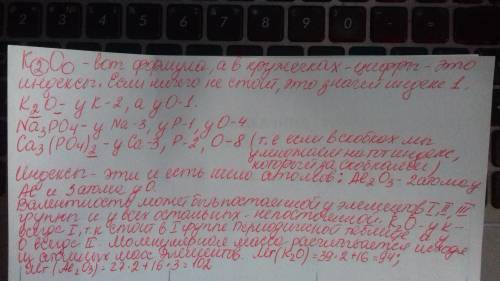 K②O○ - вот формула, а в кружочках - цифры - это
индексы. Если ничего не стоит, это значит индекс 1.
K₂O - у K-2, а у O-1.
Na₃PO₄ - у Na-3, у P-1, у O-4
Ca₃(PO₄)₂ - у Ca-3, P-2, O-8 (т.е если в скобках мы
умножаем на тот индекс,
который за скобками)
Индексы - эти и есть число атомов: Al₂O₃ - 2 атома у
Al и 3 атома у O.
Валентность может быть постоянной у элементов I, II, III
группы и у всех остальных - непостоянной. K₂O - у K -
всегда I, т.к стоит в I группе Периодической таблицы, а у
O всегда II. Молекулярная масса рассчитывается исходя
из атомных масс элементов. Mr(K₂O) = 39·2+16 = 94;
Mr(Al₂O₃) = 27·2+16·3 = 102